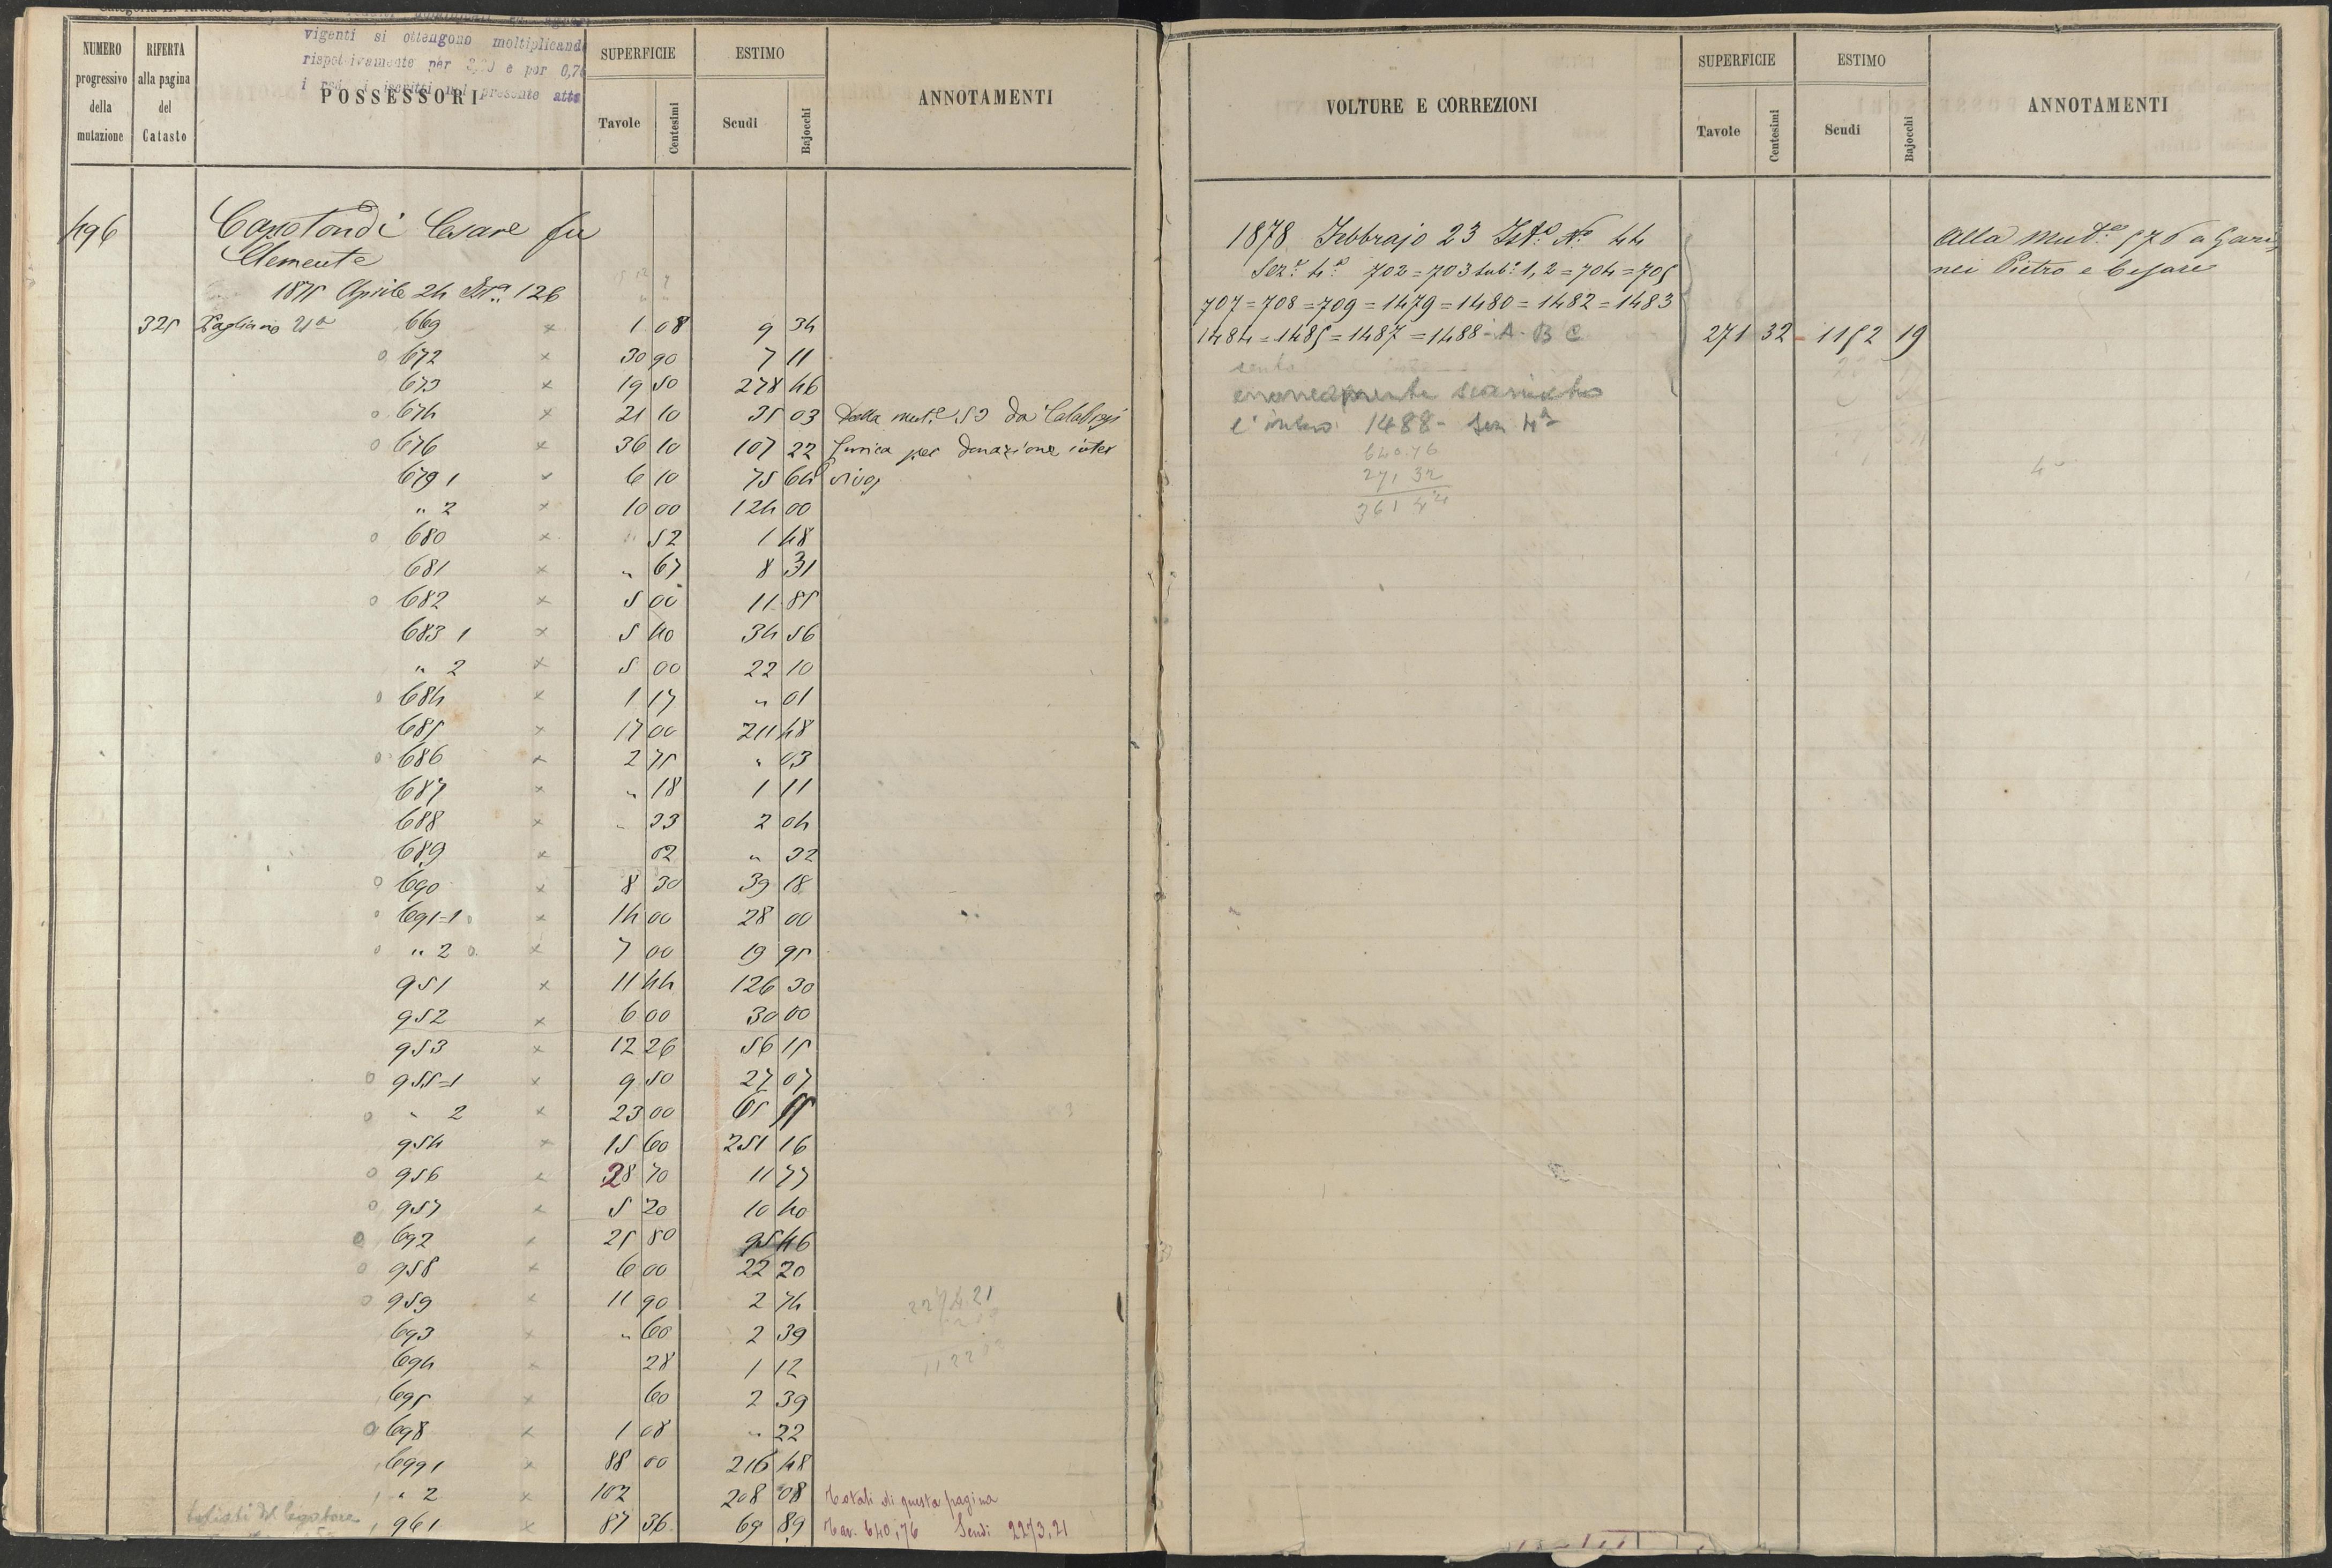 vigenti si ottengono moltiplicando
rispettivamente per e per 0,76
i redditi iscritti nel presente atto
NUMERO progressivo della mutazione
RIFERTA alla pagina del Catasto
POSSESSORI
SUPERFICIE
Tavole Centesimi
ESTIMO
Scudi Bajocchi
ANNOTAMENTI
496 Capotondi Cesare fu
Clemente
1875 Aprile 24 Ist.a 126
325 Pagliano 4a 669 x 1 08 9 34
o 672 x 30 90 7 11
673 x 19 50 278 46
o 674 x 21 10 35 03 Dalla mut.e 53 da Calabresi
o 676 x 36 10 107 22 per Donazione inter
679 1 x 6 10 75 64 vivos
" 2 x 10 00 124 00
o 680 x " 52 1 48
681 x " 67 8 31
o 682 x 5 00 11 85
683 1 x 5 40 34 56
" 2 x 5 00 22 10
o 684 x 1 17 " 01
685 x 17 00 211 48
o 686 x 2 75 " 03
687 x " 18 1 11
688 x " 33 2 04
689 x 02 " 32
o 690 x 8 30 39 18
o 691=1 o x 14 00 28 00
o " 2 o x 7 00 19 95
951 x 11 44 126 30
952 x 6 00 30 00
953 x 12 26 56 15
o 955=1 x 9 50 27 07
o " 2 x 23 00 65 55
954 x 15 60 251 16
o 956 x 28 70 11 77
o 957 x 5 20 10 40
o 692 x 25 80 95 46
o 958 x 6 00 22 20
o 959 x 11 90 2 74
693 x " 60 2 39
694 x 28 1 12
695 x 60 2 39
o 698 x 1 08 " 22
699 1 x 88 00 216 48
" 2 x 102 208 08 Totali di questa pagina
961 x 87 36 69 89 Tav. 640,76 Scudi 2273,21
VOLTURE E CORREZIONI
SUPERFICIE
Tavole Centesimi
ESTIMO
Scudi Bajocchi
ANNOTAMENTI
1878 Febbrajo 23 Ist.a N.o 44 Alla Mut.e 576 a Gari
Sez.e 4a 702=703 sub. 1, 2=704=705 nei Pietro e Cesare
707=708=709=1479=1480=1482=1483
1484=1485=1487=1488-A-B C 271 32 1152 19
erroneamente scaricato
l'intero 1488- Sez 4a
640.76
271 32
361 44